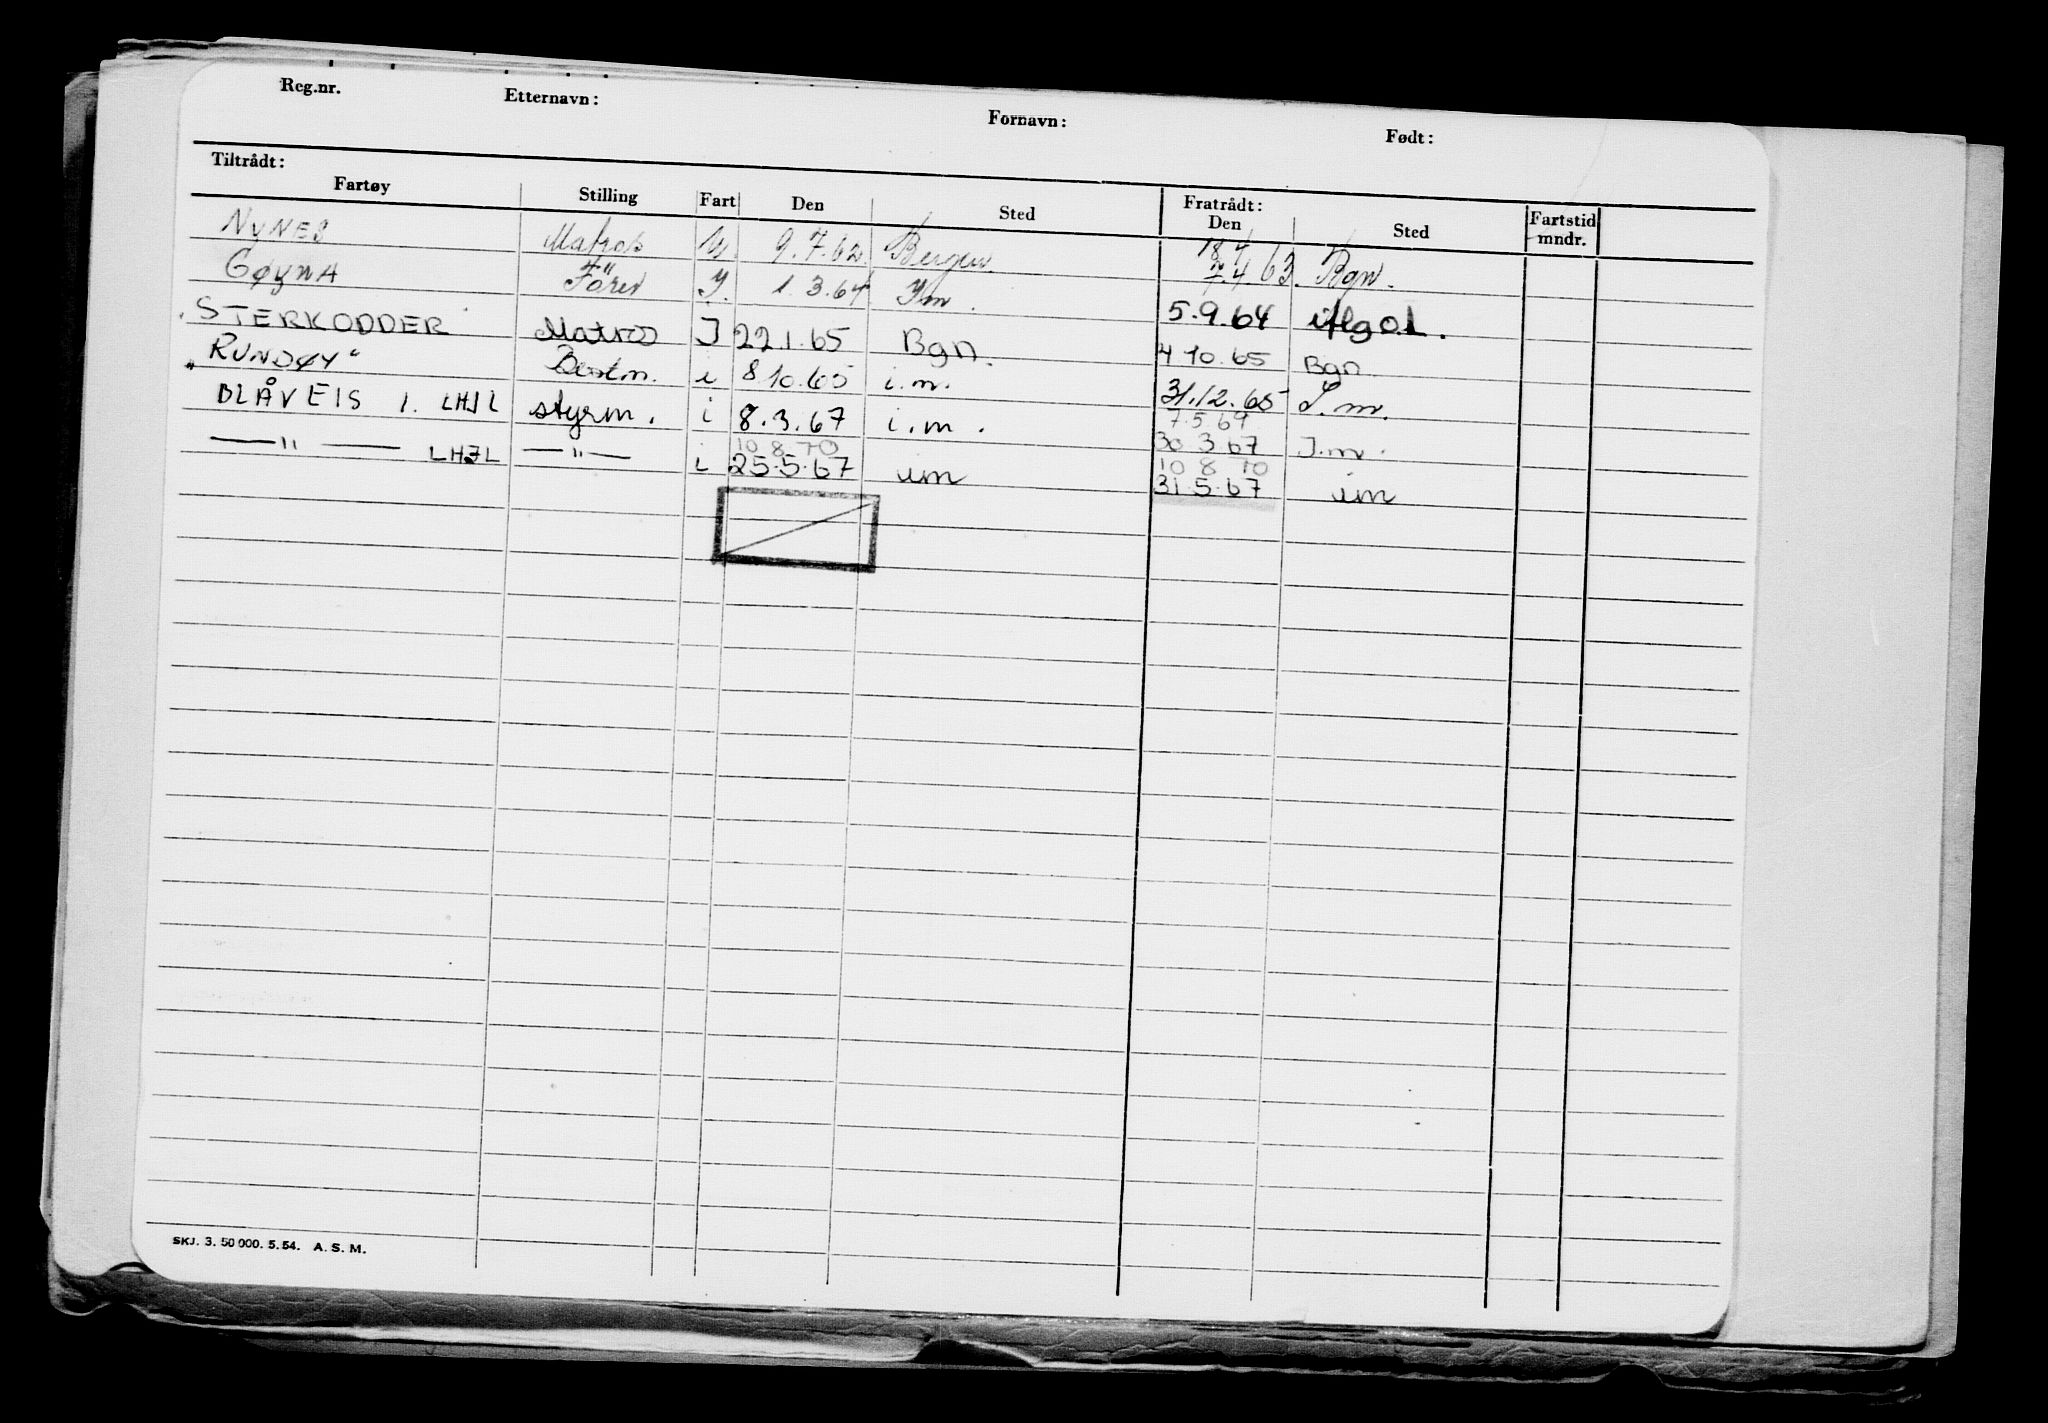 Reg.nr. Etternavn: Fornavn: Født:
Tiltrådt: Fratrådt:
Fartøy Stilling Fart Den Sted Den Sted Fartstid mndr.
NYNES Matros U 9.7.62 Bergen 18/4 63. Bgn.
GØYNA Förer I. 1.3.64 Im. 7.4
STERKODDER Matros I 22.1.65 Bgn. 5.9.64
"RUNDØY" Bestm. i 8 10.65 i.m. 4 10.65 Bgn
BLÅVEIS 1. LHJL styrm. i 8.3.67 i.m. 31.12.65 I.m.
7.5.69
—"— LHJL —"— i 10 8 70 30 3.67 I.m.
25.5.67 im 10 8 70
31.5.67 im
SKJ. 3. 50 000. 5. 54. A. S. M.